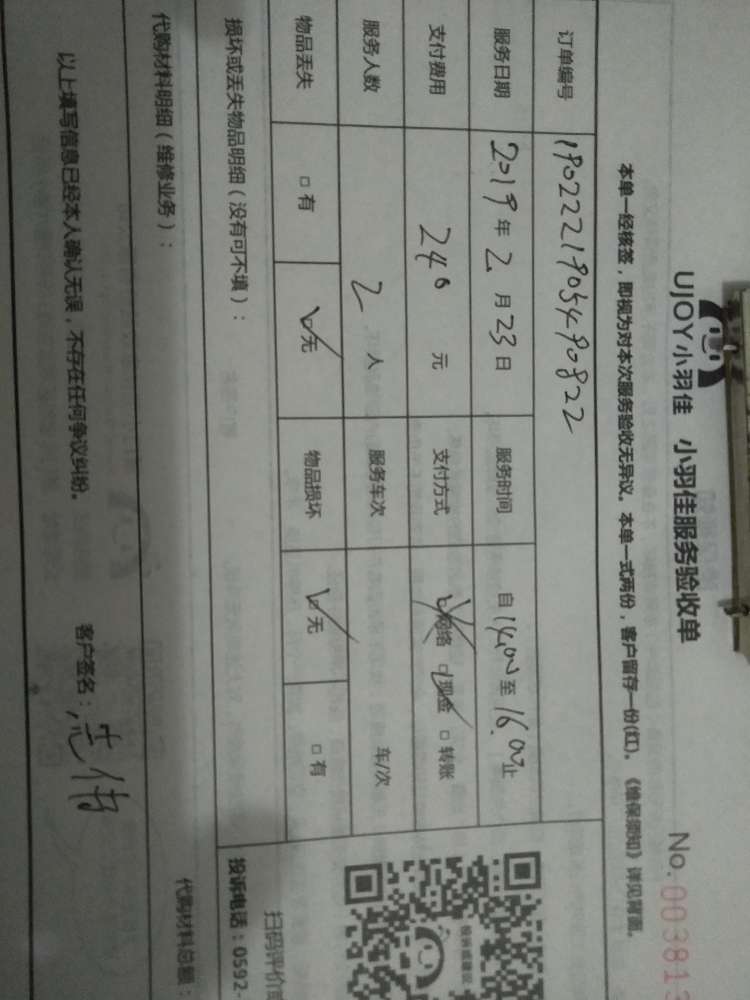 UJOY小羽佳 小羽佳服务验收单
No. 00381
本单一经核签，即视为对本次服务验收无异议。本单一式两份，客户留存一份(红)。《维保须知》详见背面。
订单编号 190222190540822
服务日期 2019年2月23日 服务时间 自14:00至16:00止
支付费用 240元 支付方式 □网络 □现金 □转账
服务人数 2人 服务车次 车/次
物品丢失 □有 □无 物品损坏 □无 □有
损坏或丢失物品明细（没有可不填）：
扫码评价
投诉电话：0592-
代购材料明细（维修业务）： 代购材料总额：
以上填写信息已经本人确认无误，不存在任何争议纠纷。 客户签名：